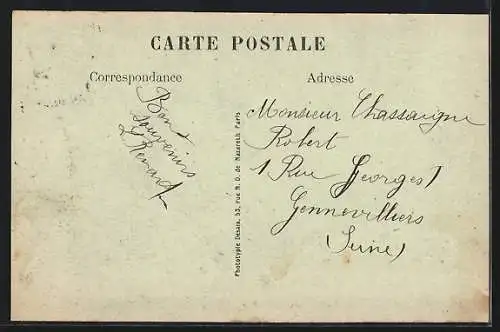 CARTE POSTALE
Correspondance
Adresse
Bons
souvenirs
L Renard
Phototypie Desaix, 53, rue N. D. de Nazareth, Paris
Monsieur Chassaigne
Robert
1 Rue Georges
Gennevilliers
(Seine)